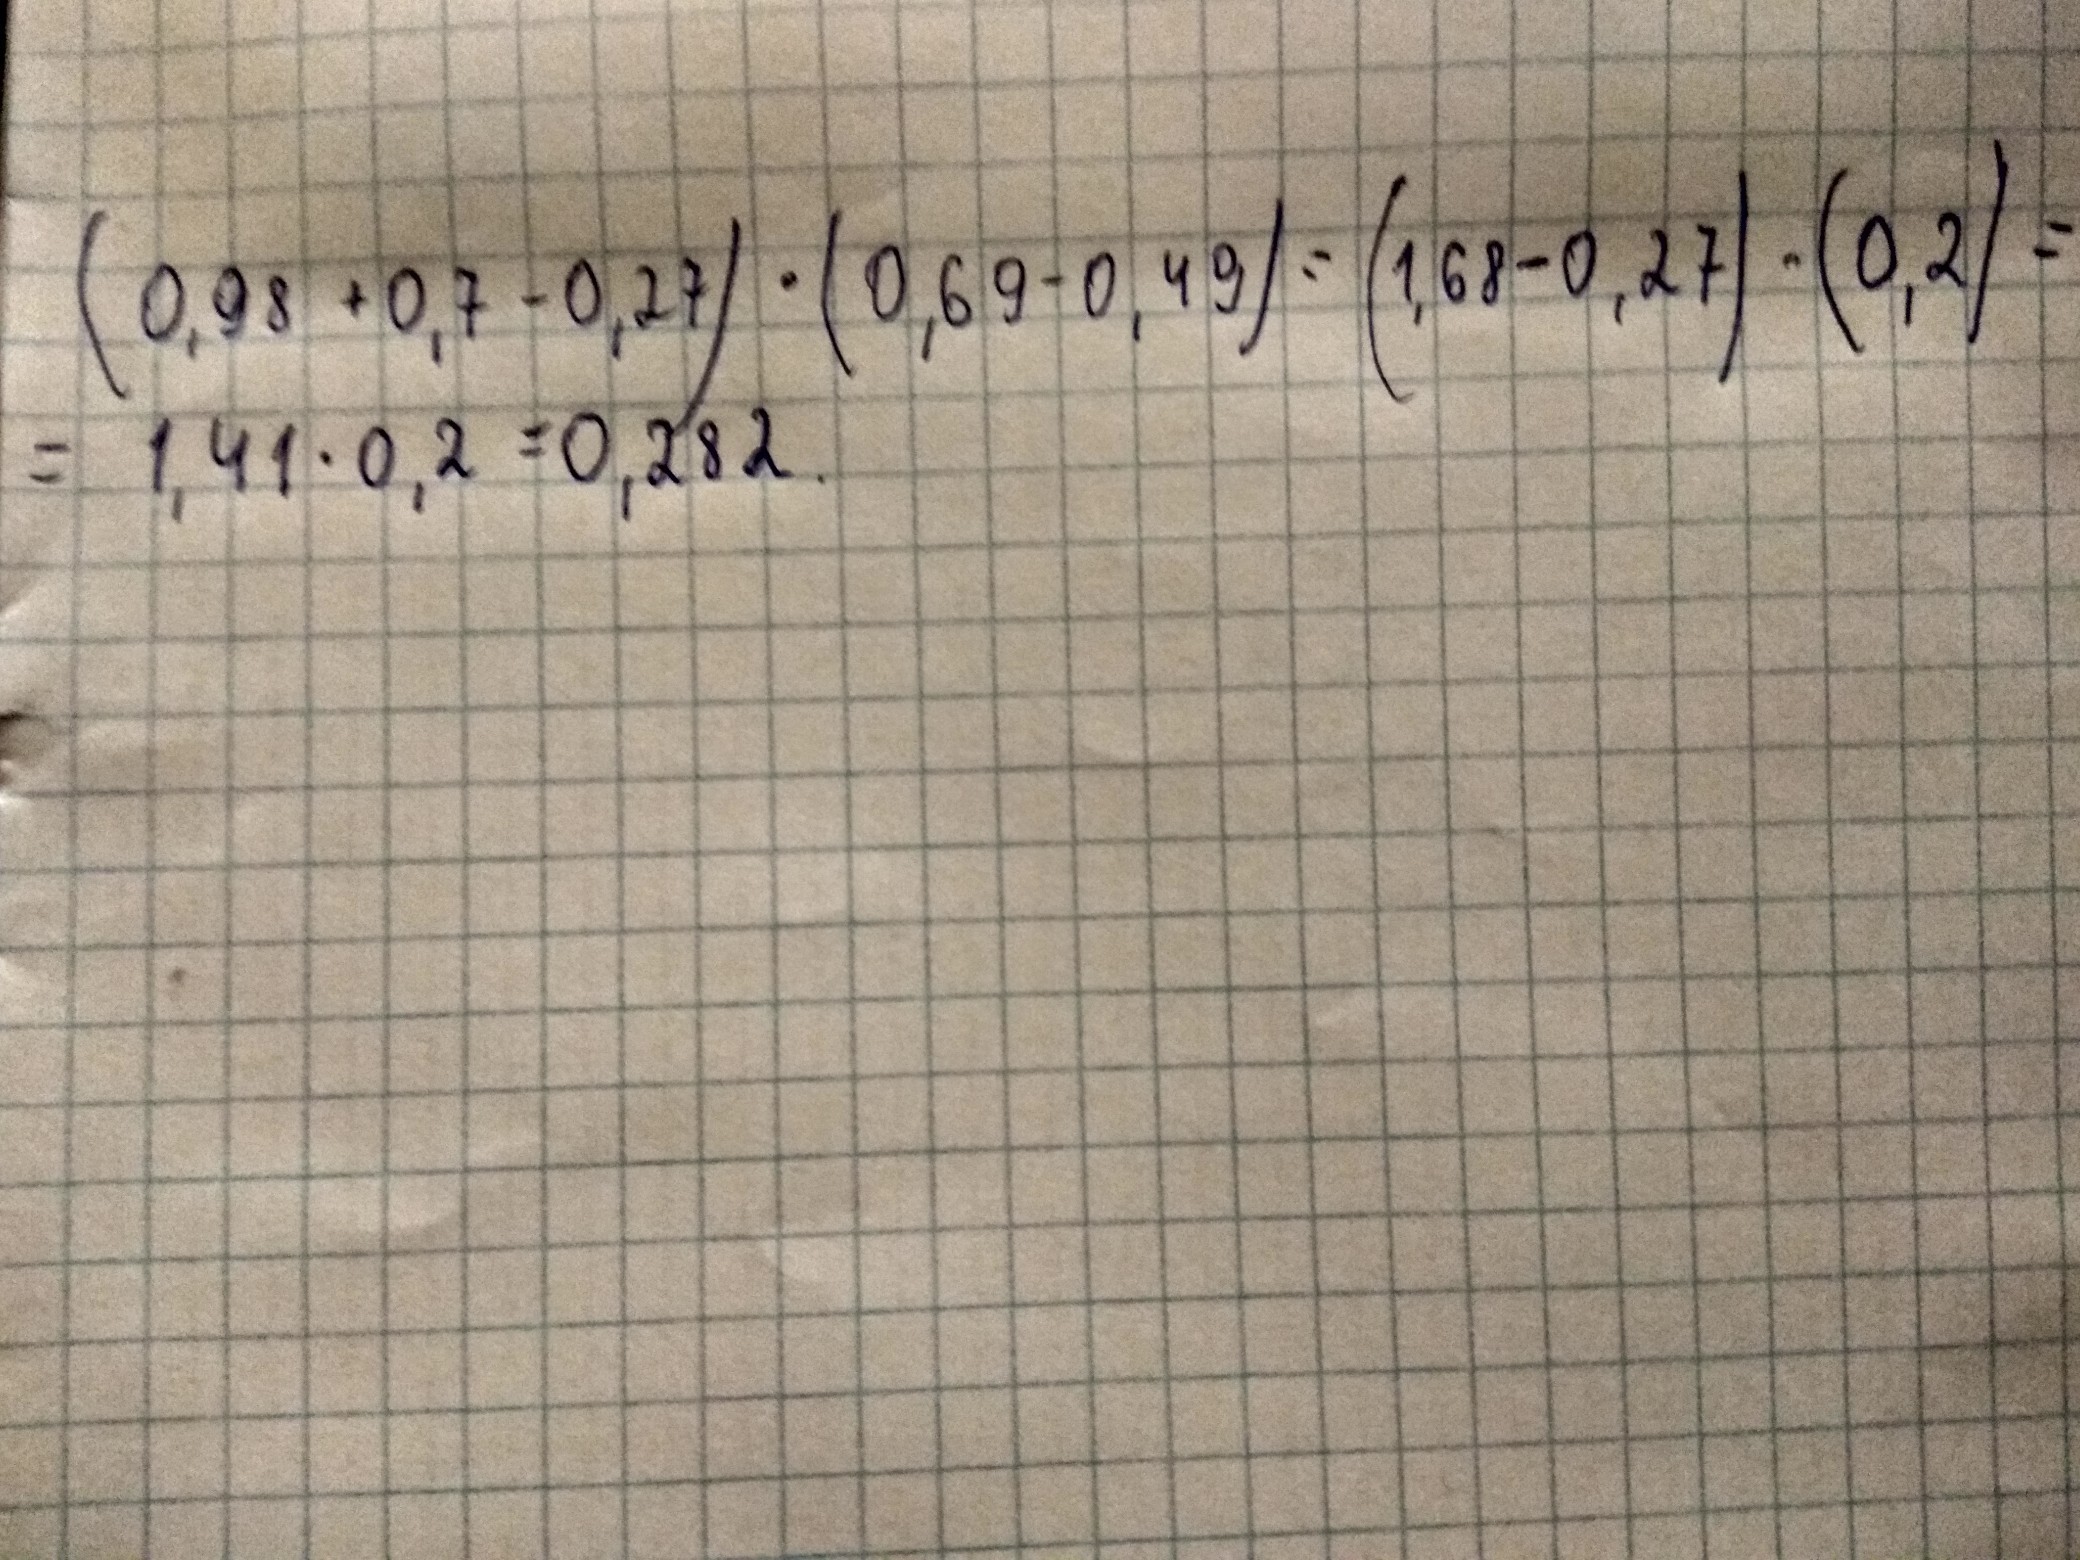 (0,98 + 0,7 - 0,27) · (0,69 - 0,49) = (1,68 - 0,27) · (0,2) =
= 1,41 · 0,2 = 0,282.